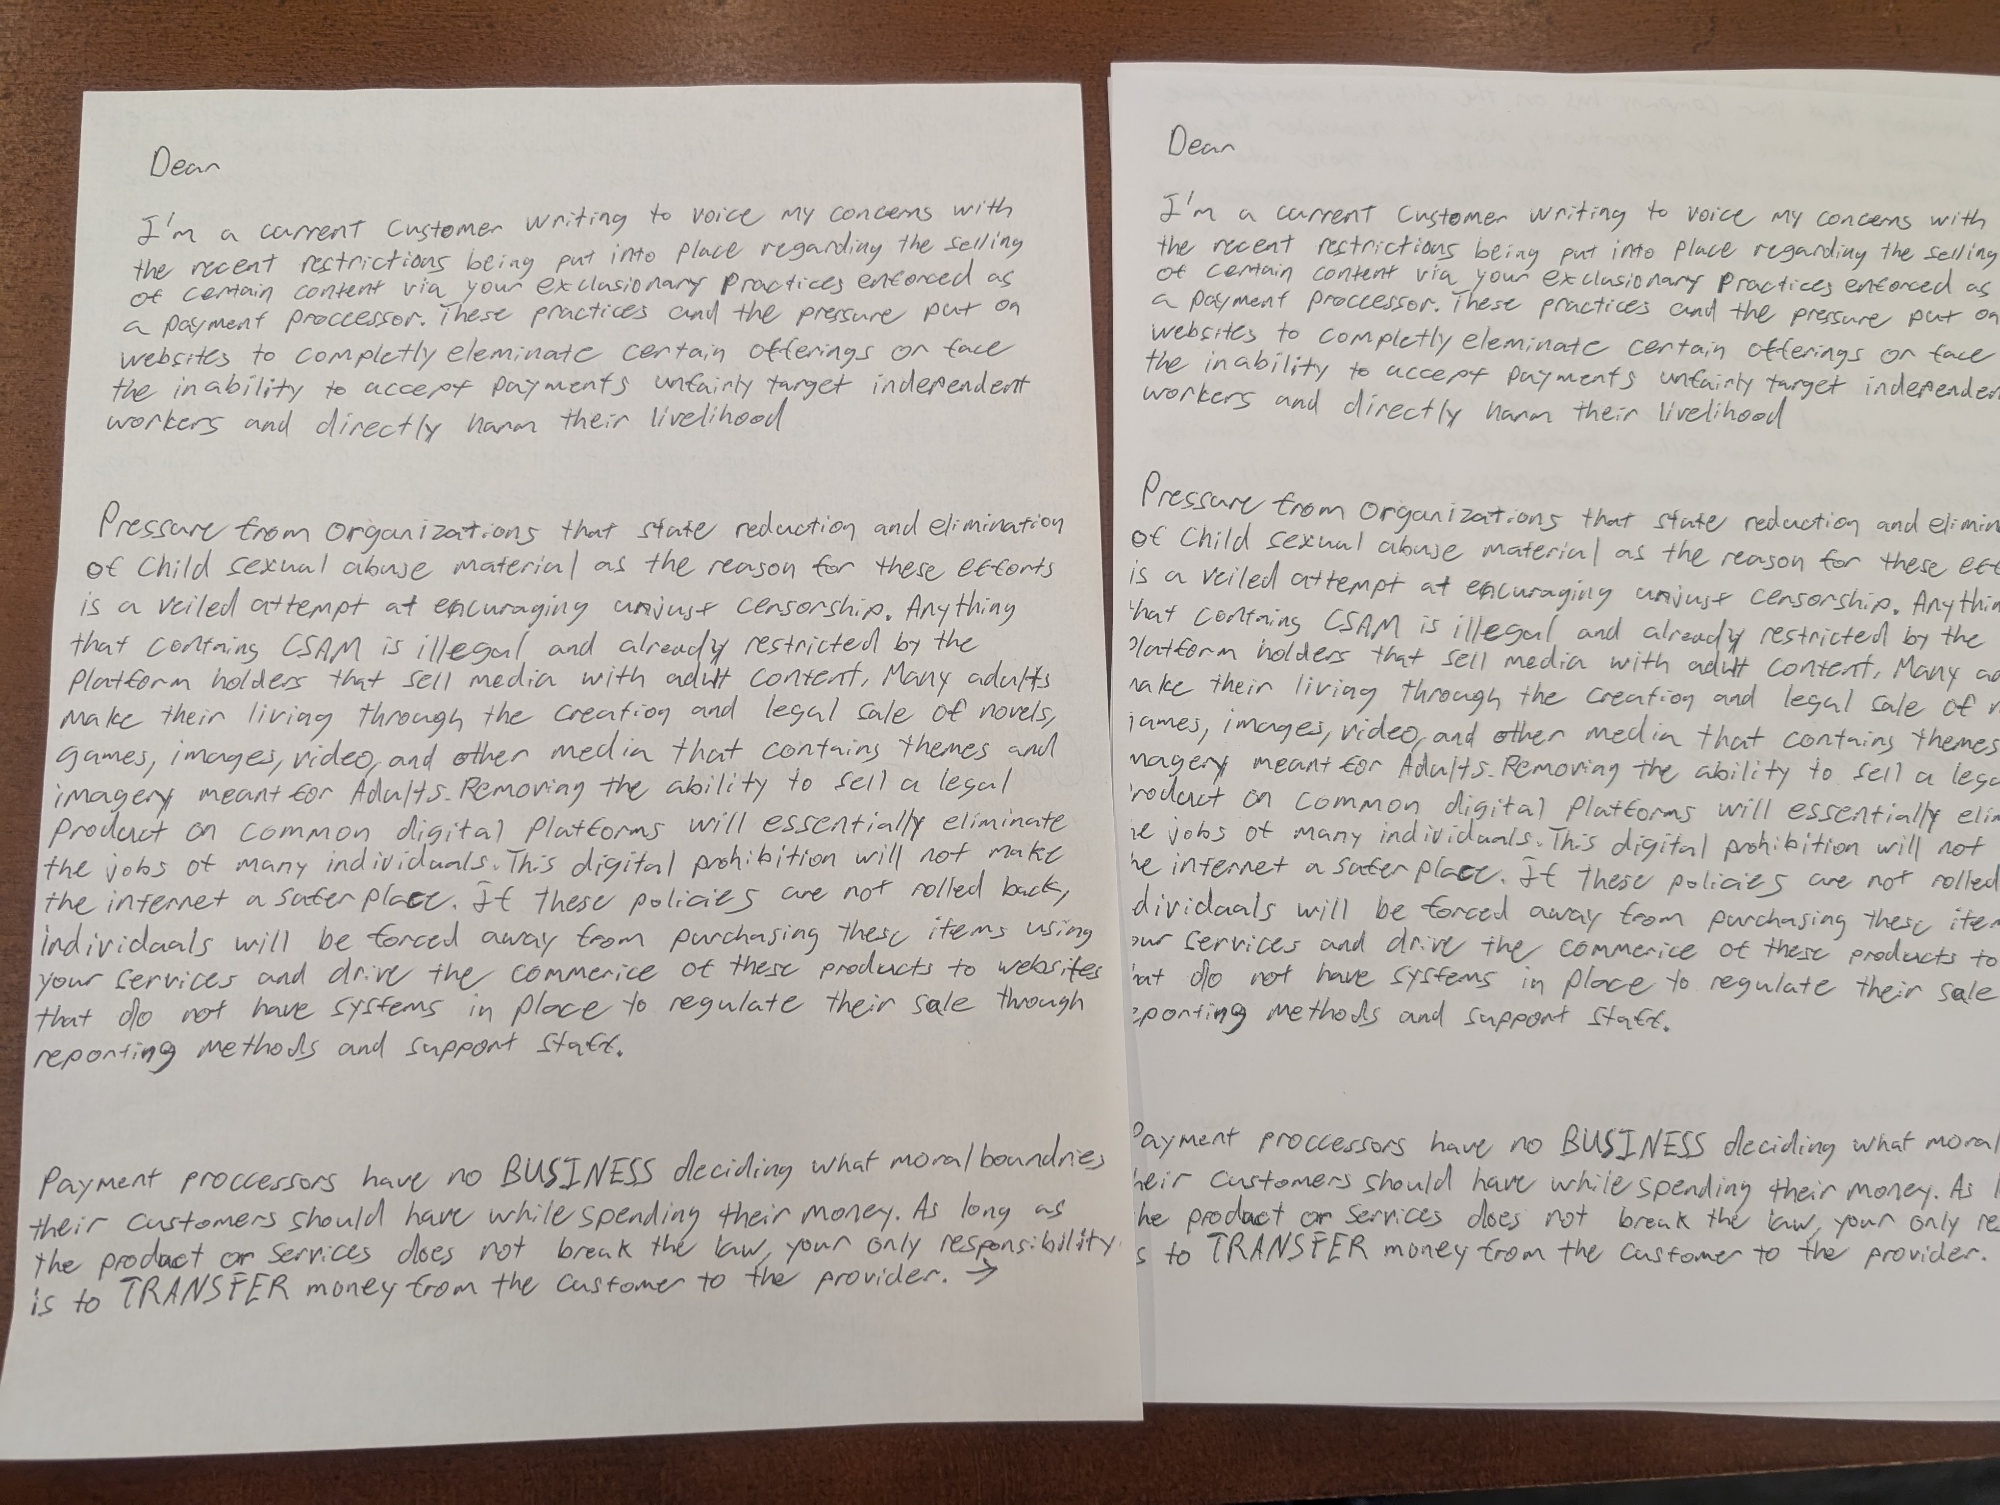 Dear
I'm a current Customer writing to voice my concerns with
the recent restrictions being put into place regarding the selling
of certain content via your exclusionary practices enforced as
a payment proccessor. These practices and the pressure put on
websites to completly eleminate certain offerings or face
the inability to accept payments unfairly target independent
workers and directly harm their livelihood
Pressure from organizations that state reduction and elimination
of Child sexual abuse material as the reason for these efforts
is a veiled attempt at encuraging unjust censorship. Anything
that contains CSAM is illegal and already restricted by the
platform holders that sell media with adult content. Many adults
make their living through the creation and legal sale of novels,
games, images, video, and other media that contains themes and
imagery meant for Adults. Removing the ability to sell a legal
product on common digital platforms will essentially eliminate
the jobs of many individuals. This digital prohibition will not make
the internet a safer place. If these policies are not rolled back,
individuals will be forced away from purchasing these items using
your services and drive the commerice of these products to websites
that do not have systems in place to regulate their sale through
reporting methods and support staff.
Payment proccessors have no BUSINESS deciding what moral boundries
their customers should have while spending their money. As long as
the product or services does not break the law, your only responsibility
is to TRANSFER money from the customer to the provider. →
Dear
I'm a current Customer writing to voice my concerns with
the recent restrictions being put into place regarding the selling
of certain content via your exclusionary practices enforced as
a payment proccessor. These practices and the pressure put on
websites to completly eleminate certain offerings or face
the inability to accept payments unfairly target independen
workers and directly harm their livelihood
Pressure from organizations that state reduction and elimin
of Child sexual abuse material as the reason for these eff
is a veiled attempt at encuraging unjust censorship. Anythin
hat contains CSAM is illegal and already restricted by the
latform holders that sell media with adult content. Many ad
ake their living through the creation and legal sale of n
ames, images, video, and other media that contains themes
magery meant for Adults. Removing the ability to sell a lega
roduct on common digital platforms will essentially elim
he jobs of many individuals. This digital prohibition will not
he internet a safer place. If these policies are not rolled
dividuals will be forced away from purchasing these item
our services and drive the commerice of these products to
hat do not have systems in place to regulate their sale
eporting methods and support staff.
Payment proccessors have no BUSINESS deciding what moral
heir customers should have while spending their money. As l
he product or services does not break the law, your only re
s to TRANSFER money from the customer to the provider.